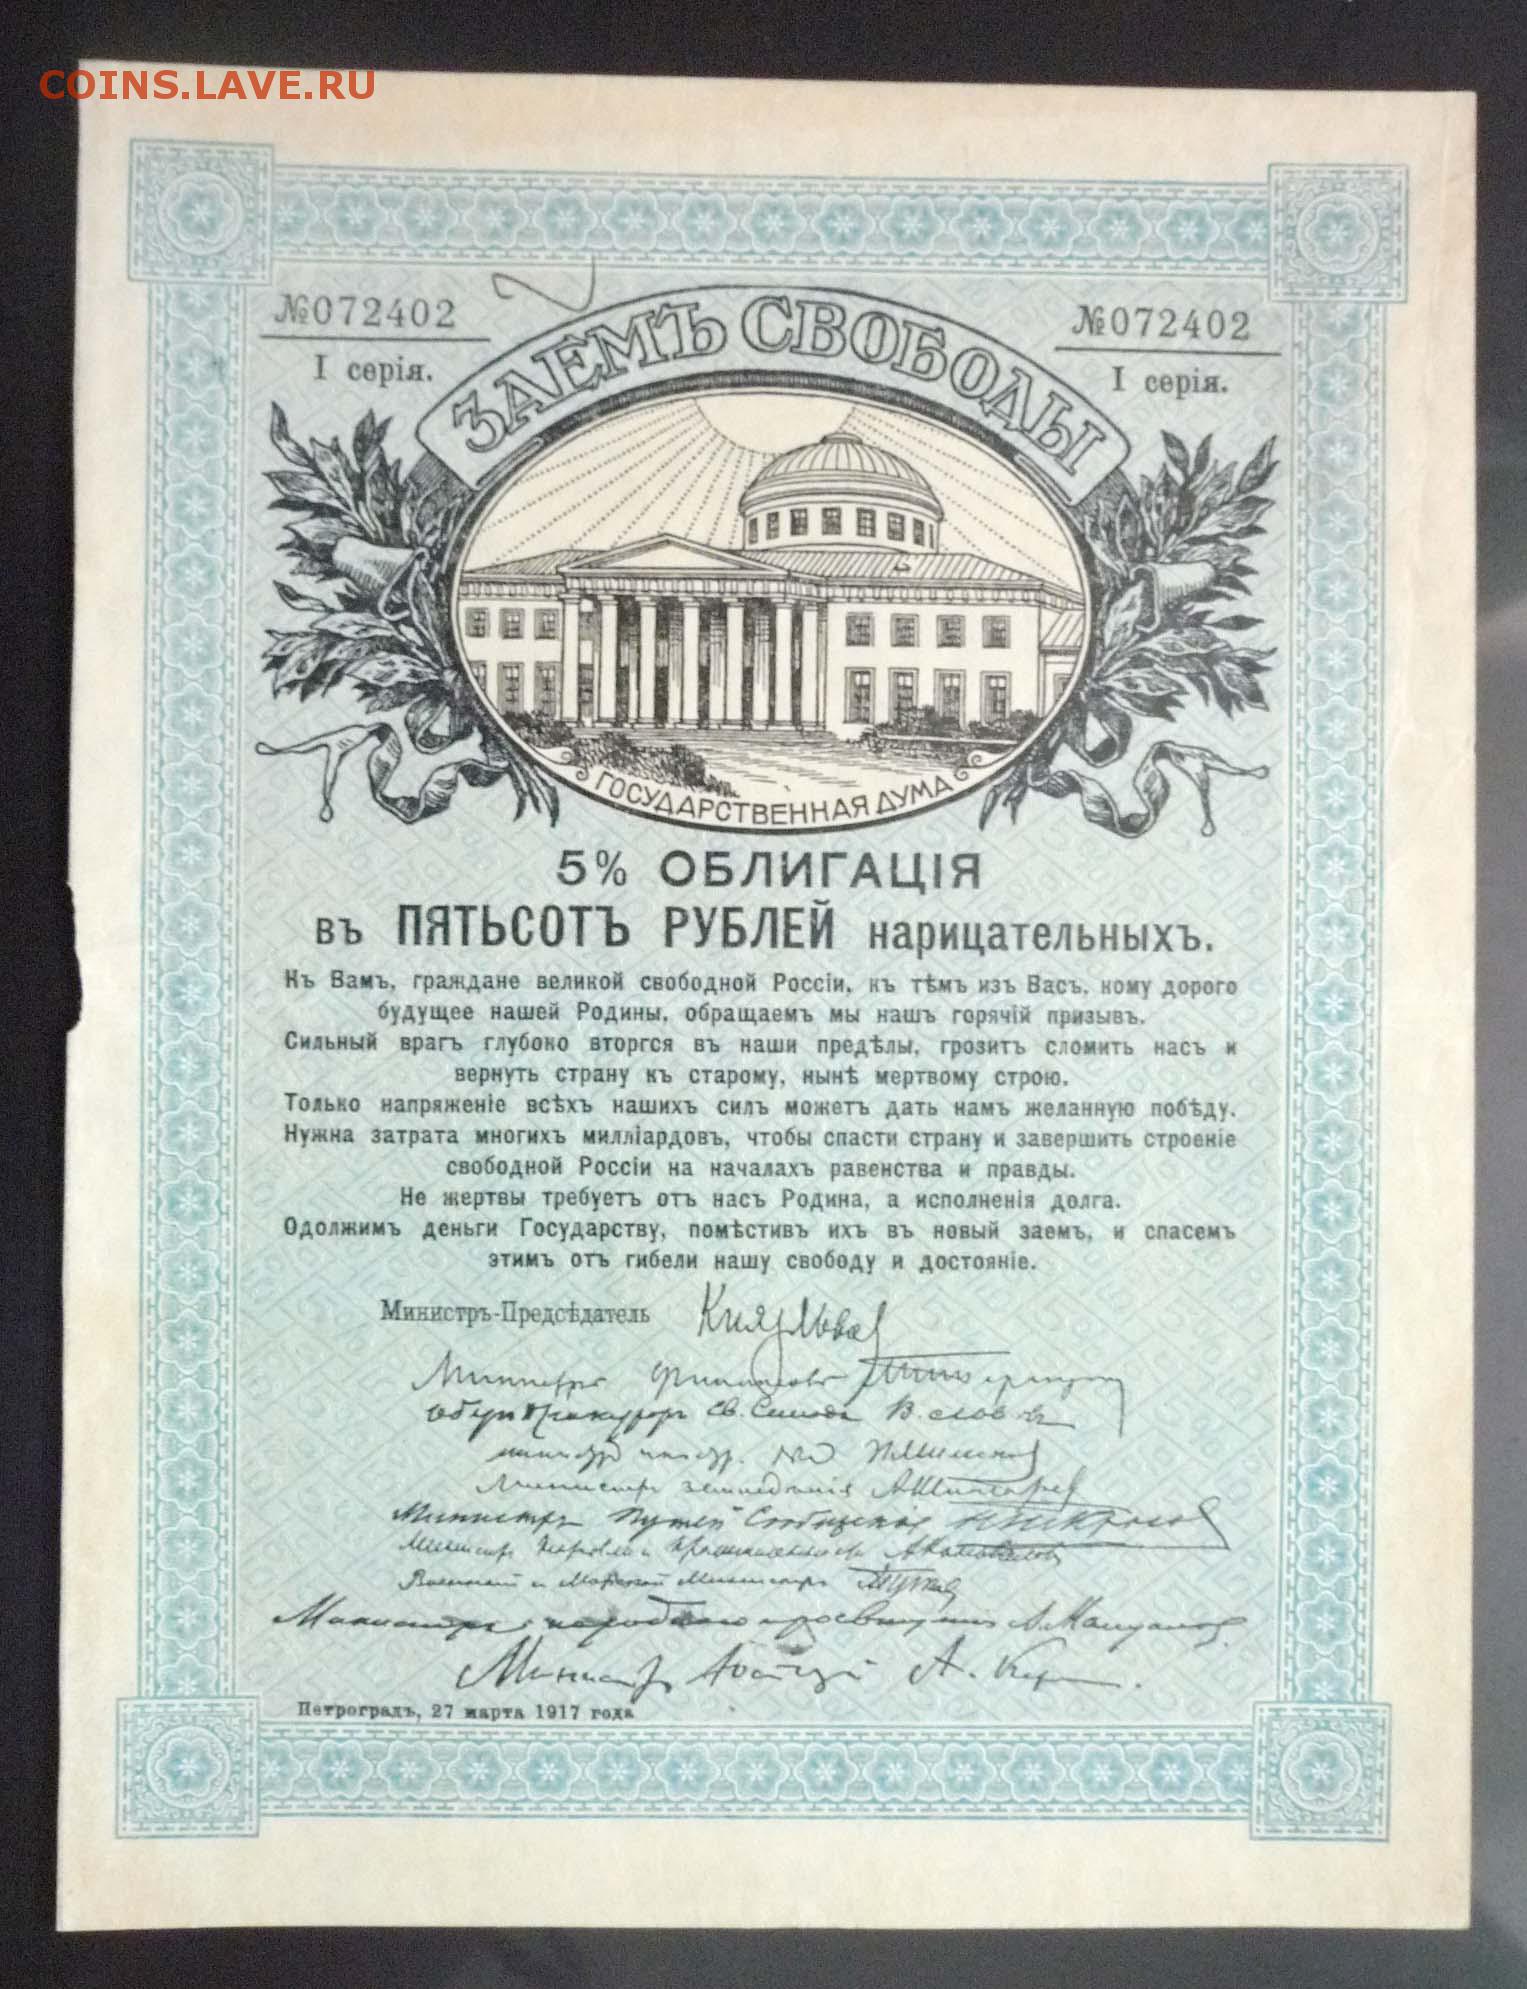 COINS.LAVE.RU
№072402
№072402
I серія.
I серія.
ЗАЕМЪ СВОБОДЫ
ГОСУДАРСТВЕННАЯ ДУМА
5% ОБЛИГАЦІЯ
въ ПЯТЬСОТЪ РУБЛЕЙ нарицательныхъ.
Къ Вамъ, граждане великой свободной Россіи, къ тѣмъ изъ Васъ, кому дорого
будущее нашей Родины, обращаемъ мы нашъ горячій призывъ.
Сильный врагъ глубоко вторгся въ наши предѣлы, грозитъ сломить насъ и
вернуть страну къ старому, нынѣ мертвому строю.
Только напряженіе всѣхъ нашихъ силъ можетъ дать намъ желанную побѣду.
Нужна затрата многихъ милліардовъ, чтобы спасти страну и завершить строеніе
свободной Россіи на началахъ равенства и правды.
Не жертвы требуетъ отъ насъ Родина, а исполненія долга.
Одолжимъ деньги Государству, помѣстивъ ихъ въ новый заемъ, и спасемъ
этимъ отъ гибели нашу свободу и достояніе.
Министръ-Предсѣдатель Князь Львов
Министръ Финансовъ
Министръ земледѣлія
Министръ Путей Сообщенія
Министръ Торговли и Промышленности
Военный и Морской Министръ
Министръ народного просвѣщенія
Министръ Юстиціи А. Кер
Петроградъ, 27 марта 1917 года